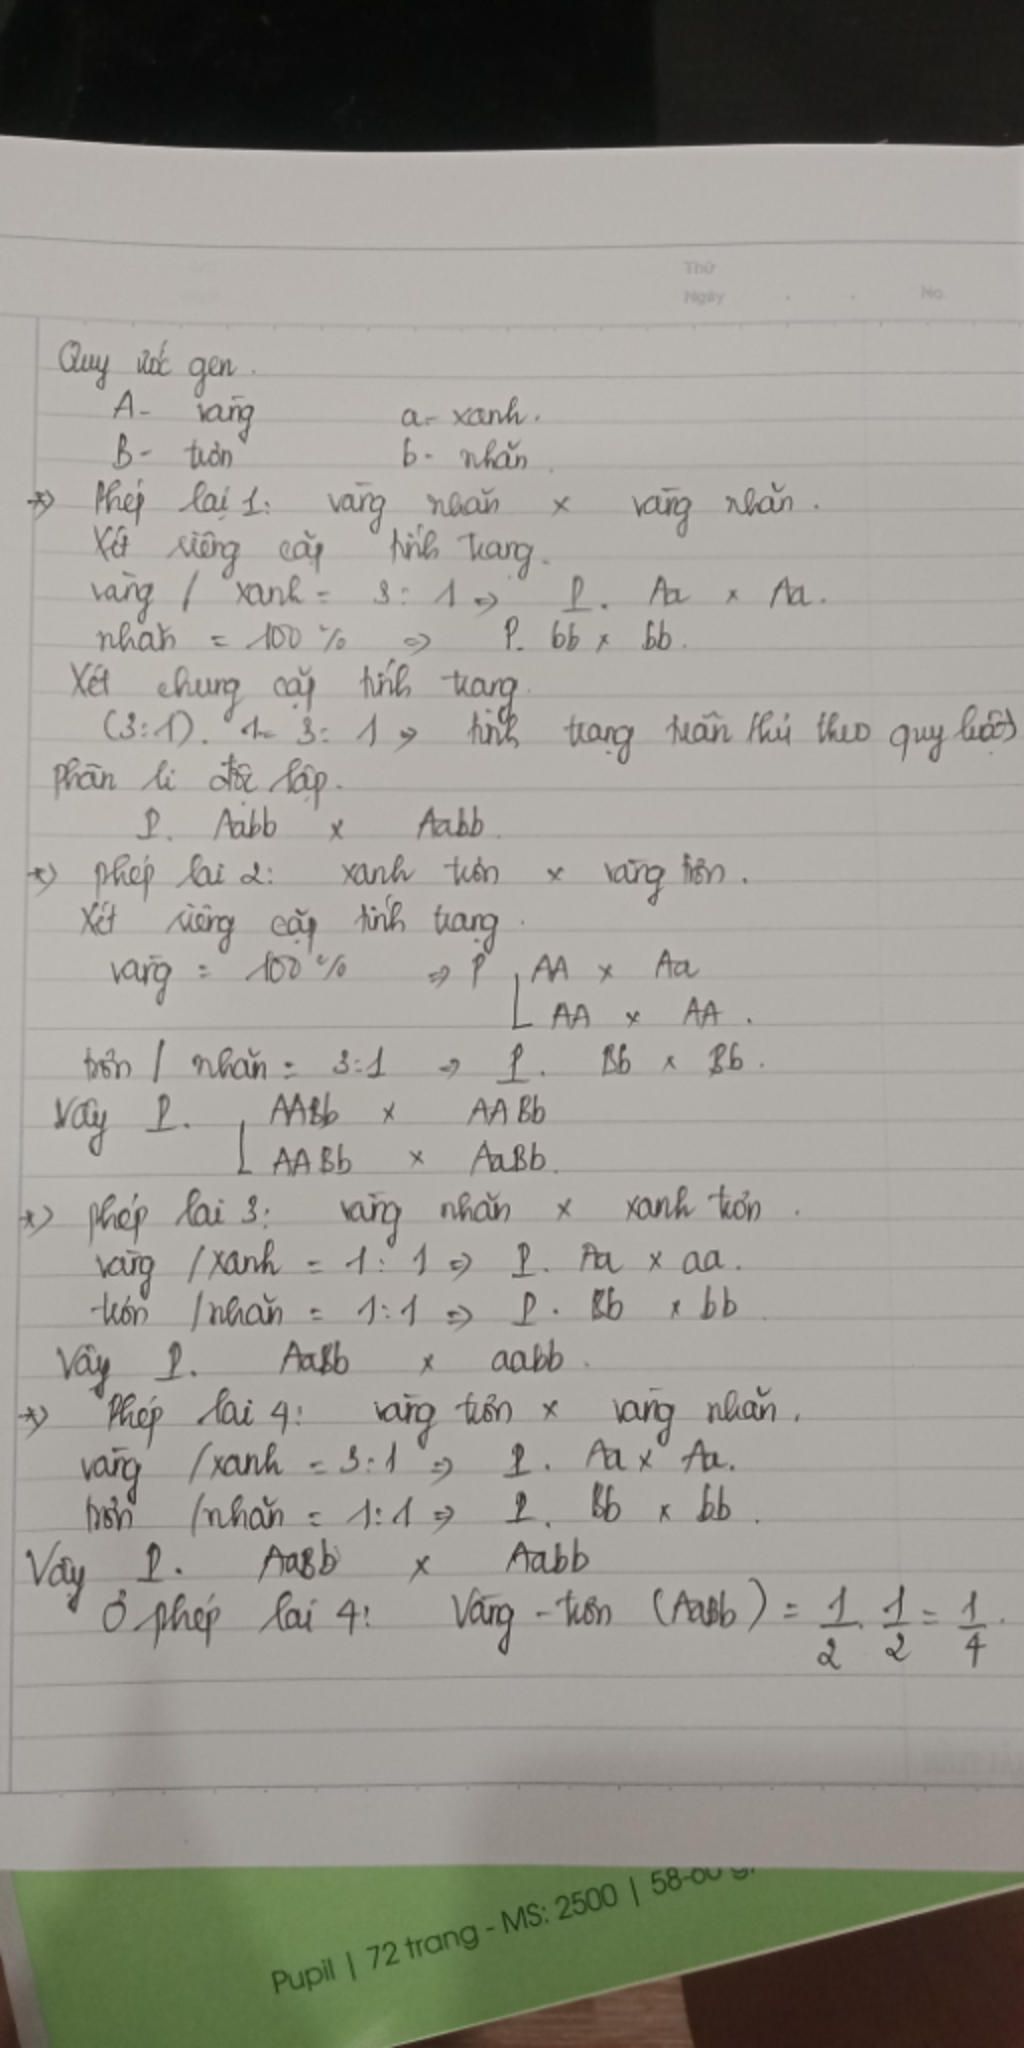 Thứ
Ngày . . No.
Quy ước gen.
A- vàng a- xanh.
B- trơn b- nhăn.
*) Phép lai 1: vàng nhăn x vàng nhăn.
Xét riêng cặp tính trạng.
vàng / xanh = 3:1 => P. Aa x Aa.
nhăn = 100% => P. bb x bb.
Xét chung cặp tính trạng.
(3:1). 1= 3:1 => tính trạng tuân thủ theo quy luật
phân li độc lập.
P. Aabb x Aabb.
*) phép lai 2: xanh trơn x vàng trơn.
Xét riêng cặp tính trạng.
vàng = 100% => P AA x Aa
AA x AA.
trơn / nhăn = 3:1 => P. Bb x Bb.
Vậy P. AABb x AABb
AABb x AaBb.
*) phép lai 3: vàng nhăn x xanh trơn.
vàng /xanh = 1:1 => P. Aa x aa.
trơn /nhăn = 1:1 => P. Bb x bb
Vậy P. AaBb x aabb.
*) Phép lai 4: vàng trơn x vàng nhăn.
vàng /xanh = 3:1 => P. Aa x Aa.
trơn /nhăn = 1:1 => P. Bb x bb.
Vậy P. AaBb x Aabb
Ở phép lai 4: Vàng - trơn (AaBb) = 1/2 . 1/2 = 1/4.
Pupil | 72 trang - MS: 2500 | 58-60